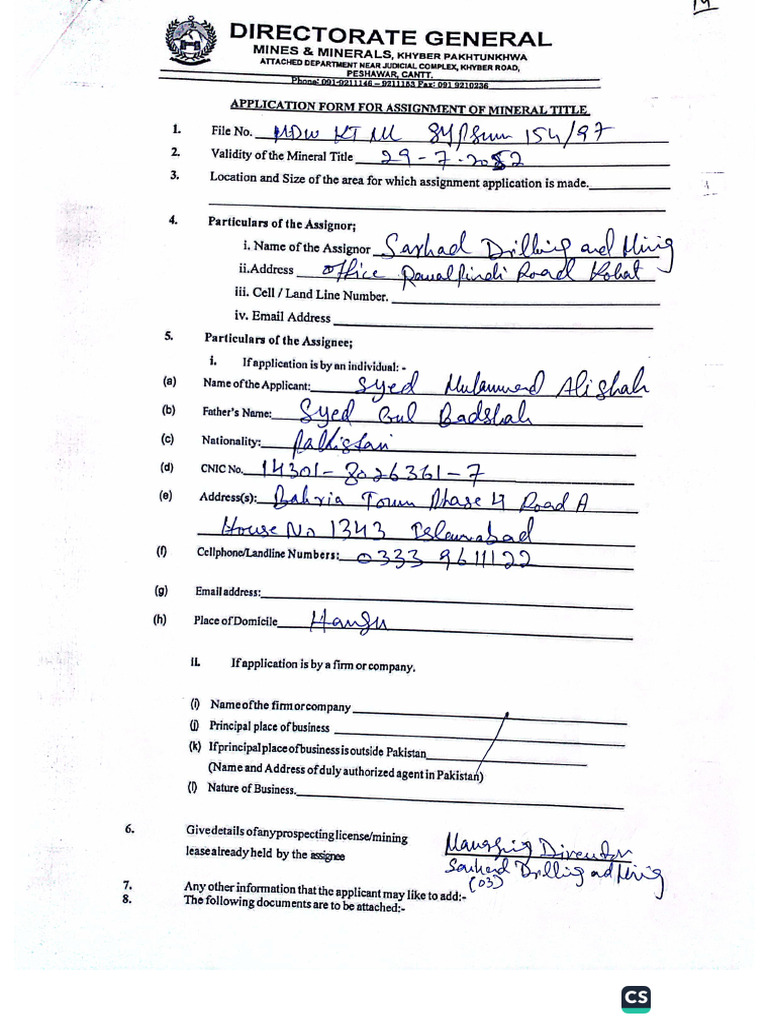 19
DIRECTORATE GENERAL
MINES & MINERALS, KHYBER PAKHTUNKHWA
ATTACHED DEPARTMENT NEAR JUDICIAL COMPLEX, KHYBER ROAD,
PESHAWAR, CANTT.
Phone: 091-9211146 – 9211153 Fax: 091 9210236
APPLICATION FORM FOR ASSIGNMENT OF MINERAL TITLE
1. File No. MDW KT ML Gypsum 154/97
2. Validity of the Mineral Title 29-7-2052
3. Location and Size of the area for which assignment application is made.
4. Particulars of the Assignor;
i. Name of the Assignor Sarhad Drilling and Minig
ii.Address office Rawalpindi Road Kohat
iii. Cell / Land Line Number.
iv. Email Address
5. Particulars of the Assignee;
i. If application is by an individual: -
(a) Name of the Applicant: Syed Muhammad Ali Shah
(b) Father's Name: Syed Gul Badshah
(c) Nationality: Pakistani
(d) CNIC No. 14301-8026361-7
(e) Address(s): Bahria Town Phase 4 Road A
House No 1343 Islamabad
(f) Cellphone/Landline Numbers: 0333 9611122
(g) Email address:
(h) Place of Domicile Hangu
II. If application is by a firm or company.
(i) Name of the firm or company
(j) Principal place of business
(k) If principal place of business is outside Pakistan
(Name and Address of duly authorized agent in Pakistan)
(l) Nature of Business.
6. Give details of any prospecting license/mining
lease already held by the assignee
Managing Director
Sarhad Drilling and Minig
(03)
7. Any other information that the applicant may like to add:-
8. The following documents are to be attached:-
CS